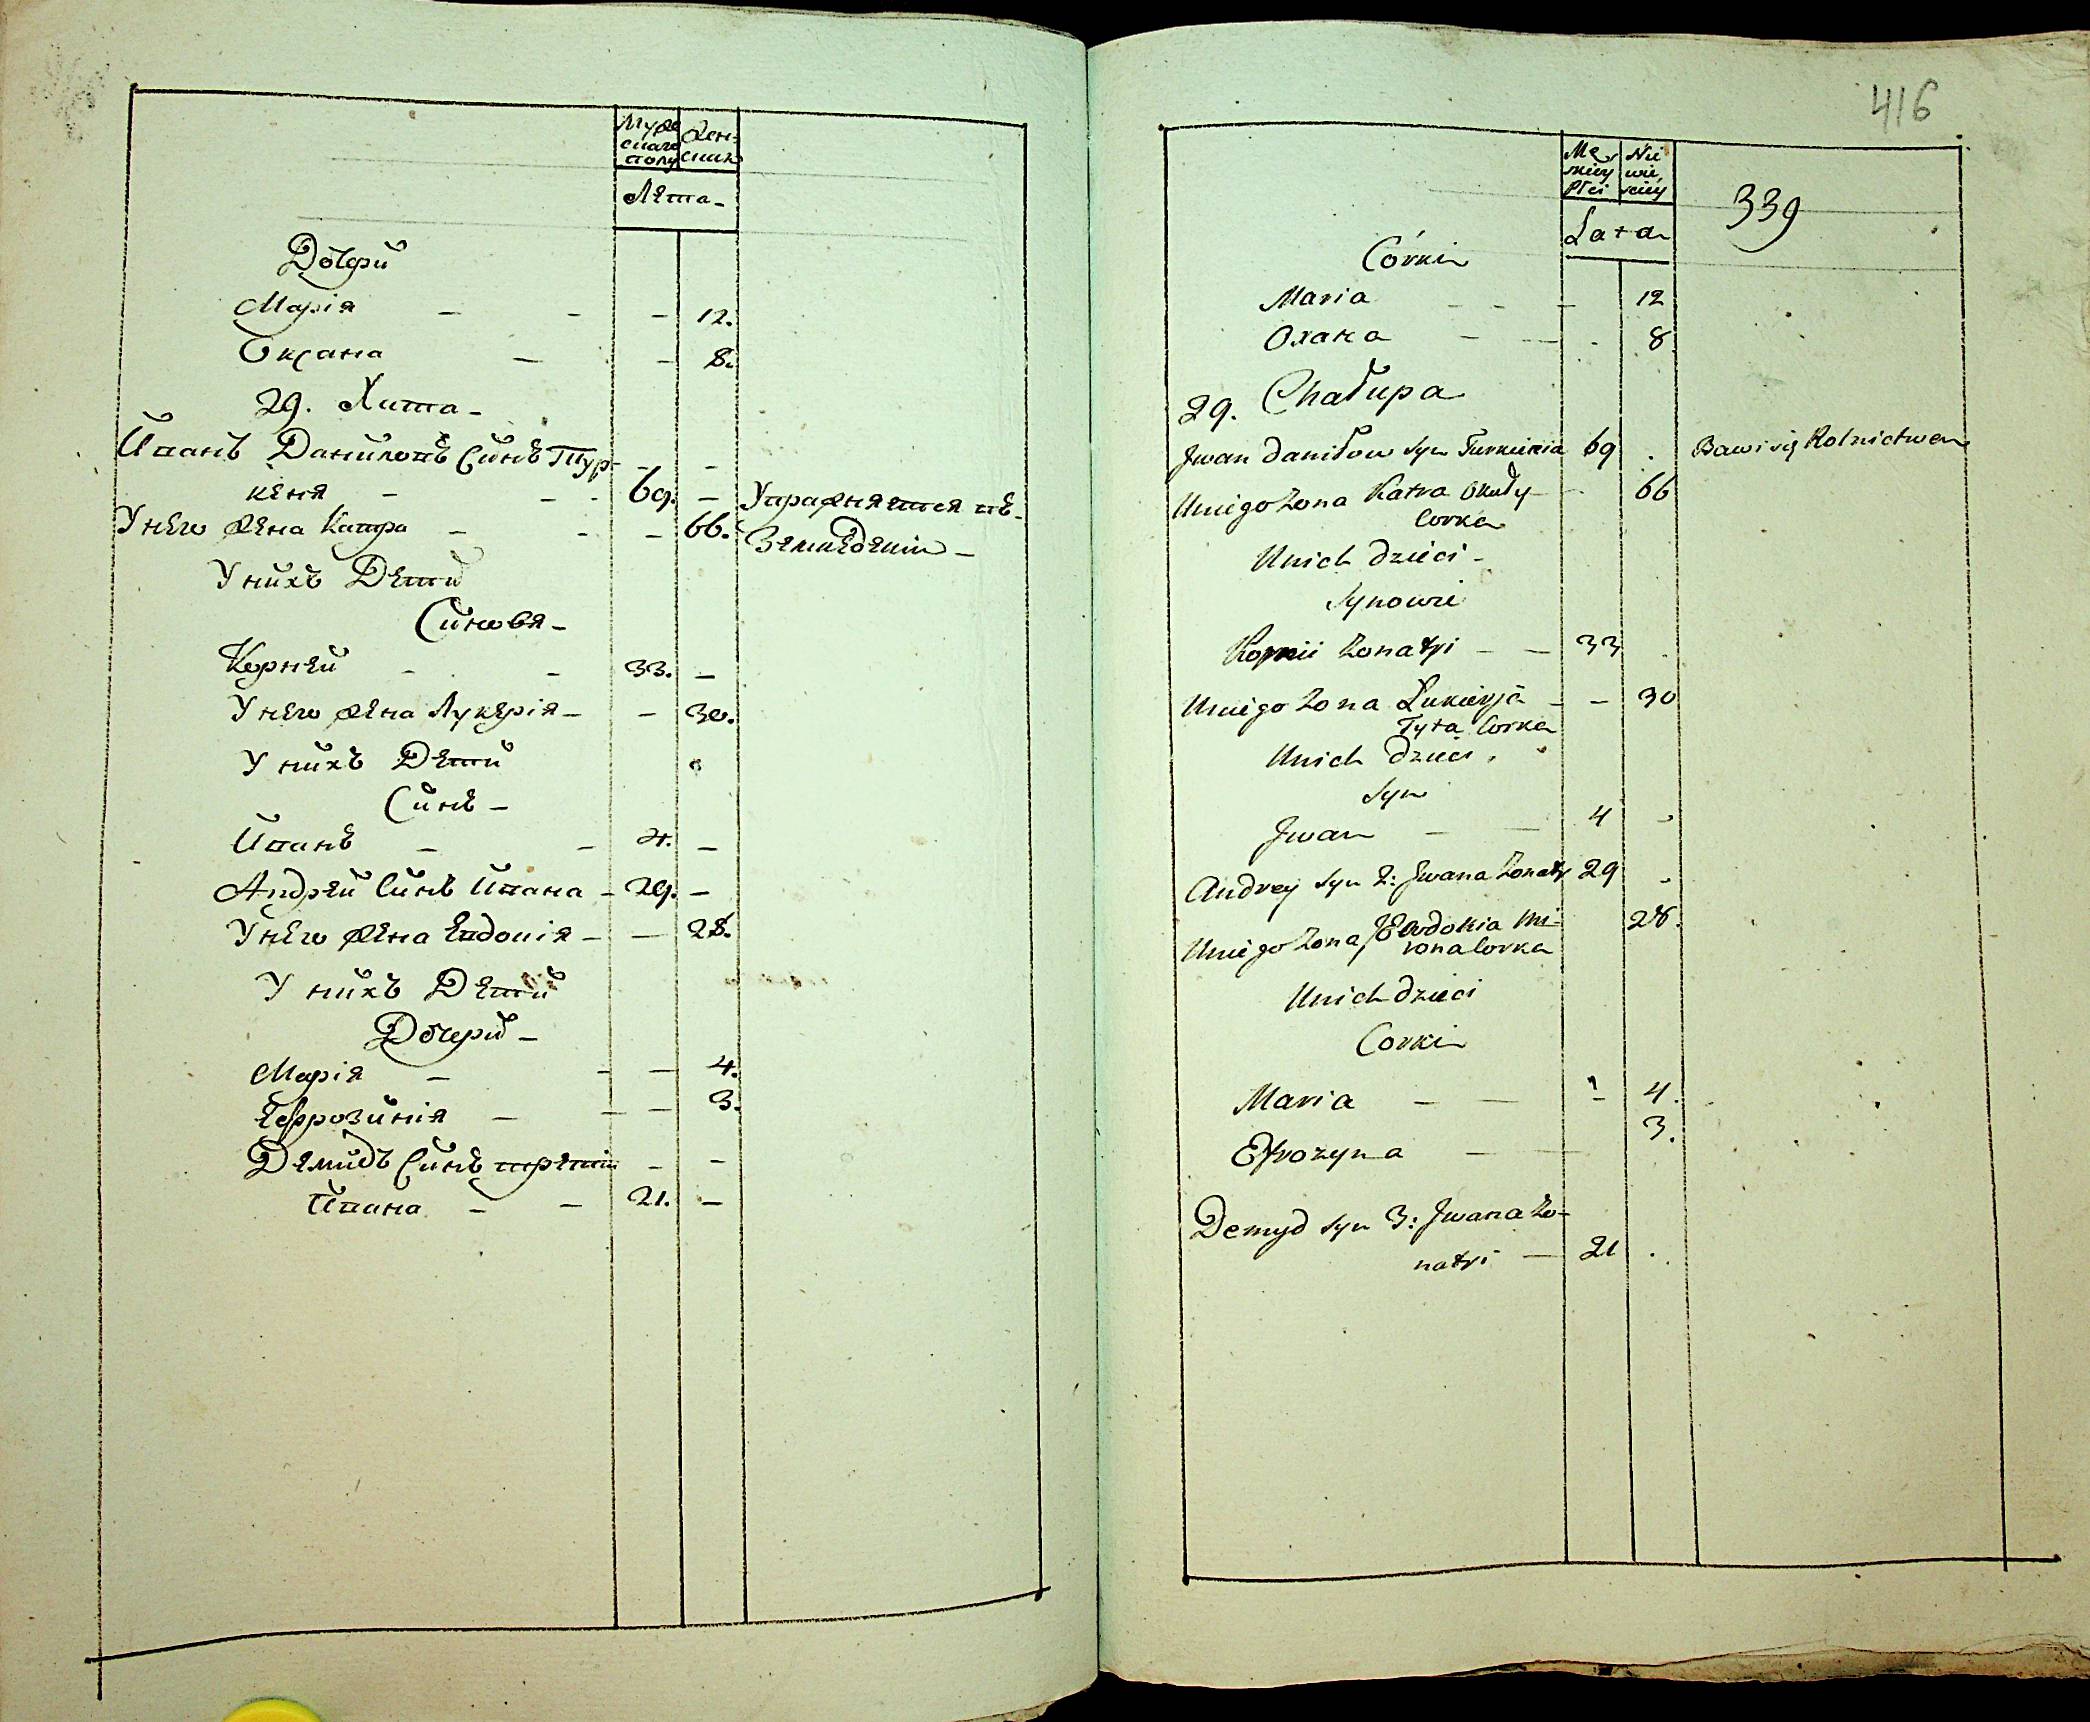 Мужескаго полу
Женскаго
Лета
Дочери
Марія 12.
Оксана 8.
29. Хата
Иванъ Даниловъ Синъ Тур-
кеня 69.
Упражняется въ
Унего жена Катра 66.
Земледелии
Унихъ Дети
Синовя
Корней 33.
Унего жена Лукерія 30.
Унихъ Дети
Синъ
Иванъ 4.
Андрей Синъ Ивана 29.
Унего жена Евдокія 28.
Унихъ Дети
Дочери
Марія 4.
Ефрозинія 3.
Демидъ Синъ третій
Ивана 21.
416
Męskiey Płci
Niewieściey
339
Lata
Córki
Maria 12
Oxana 8
29. Chałupa
Jwan Daniłow Syn Turkienia 69 Bawi się Rolnictwem
Uniego Zona Katra 66
Corka
Unich Dzieci
Synowie
Kornii Zonatyi 33
Uniego Zona Łukierja 30
Tyta Corka
Unich Dzieci
Syn
Jwan 4
Andrey Syn 2: Jwana Zonaty 29
Uniego Zona Ewdokia Mi-
rona Corka 28.
Unich Dzieci
Corki
Maria 4.
Efrozyna 3.
Demyd Syn 3: Jwana Zo-
natyi 21